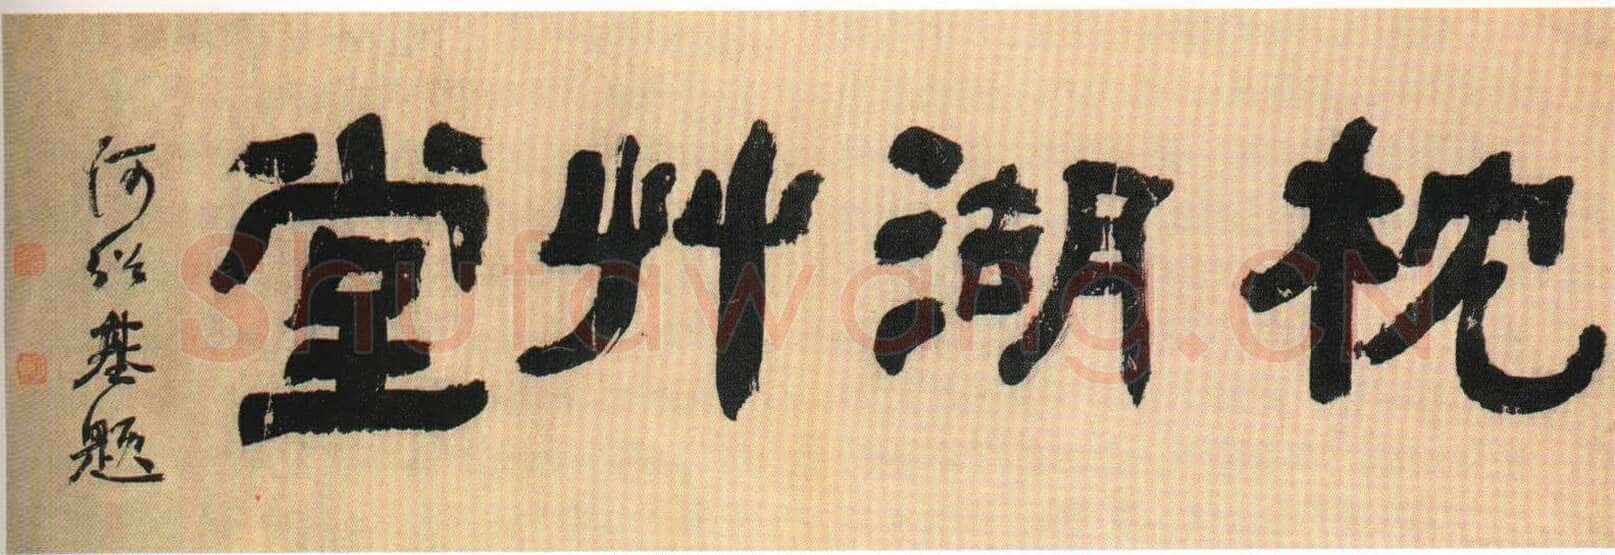 枕湖艸堂
何紹基題
Shufawang.CN